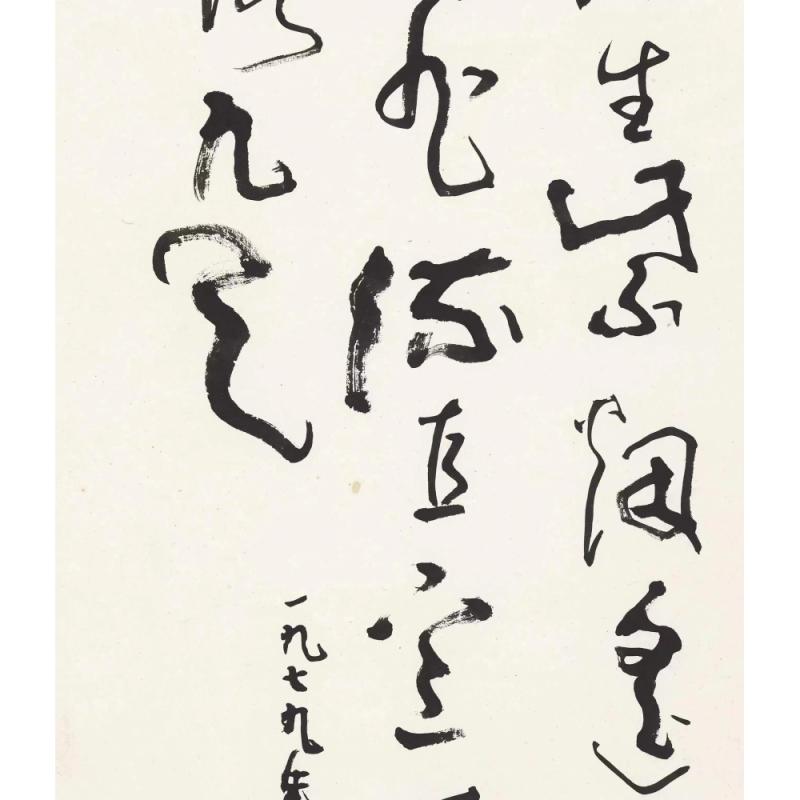 生紫烟遥
飛流直下三
落九天
一九七九年